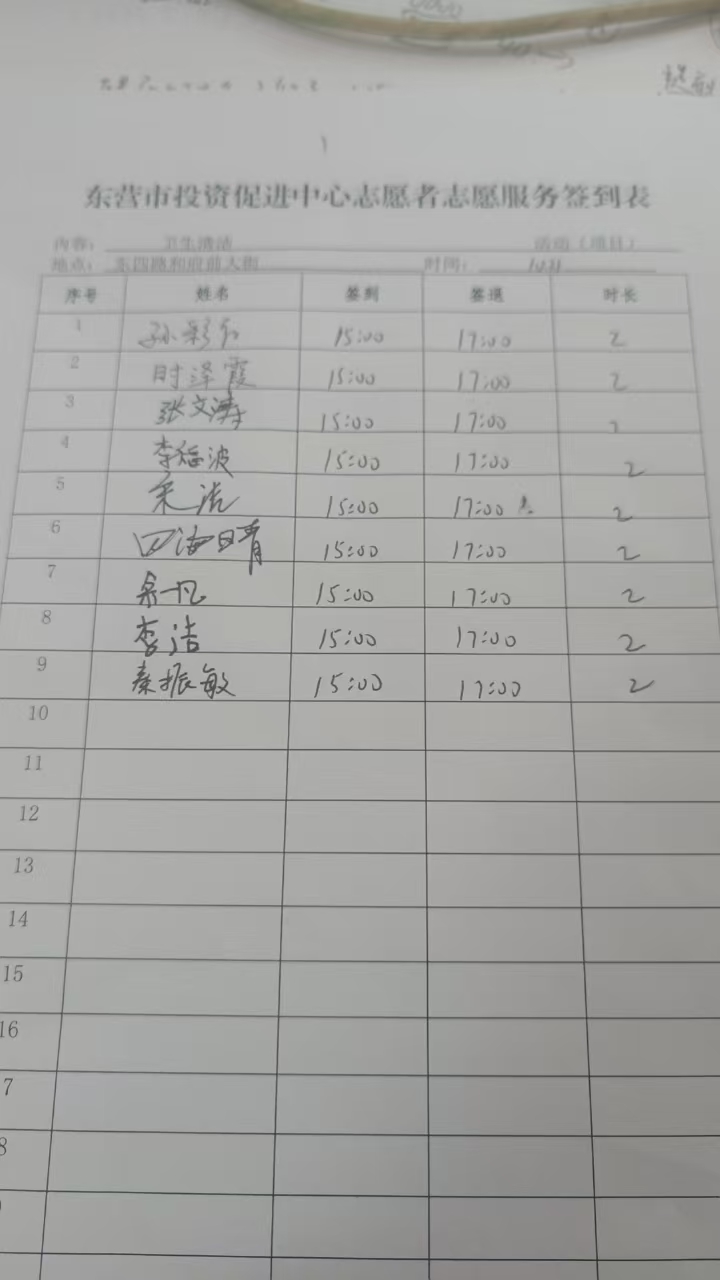 东营市投资促进中心志愿者志愿服务签到表
内容： 卫生清洁 活动（项目）
地点： 东四路和府前大街 时间：
序号 姓名 签到 签退 时长
1 孙 15:00 17:00 2
2 时泽霞 15:00 17:00 2
3 张文涛 15:00 17:00 2
4 李 波 15:00 17:00 2
5 15:00 17:00 2
6 15:00 17:00 2
7 15:00 17:00 2
8 李洁 15:00 17:00 2
9 秦振敏 15:00 17:00 2
10
11
12
13
14
15
16
7
8